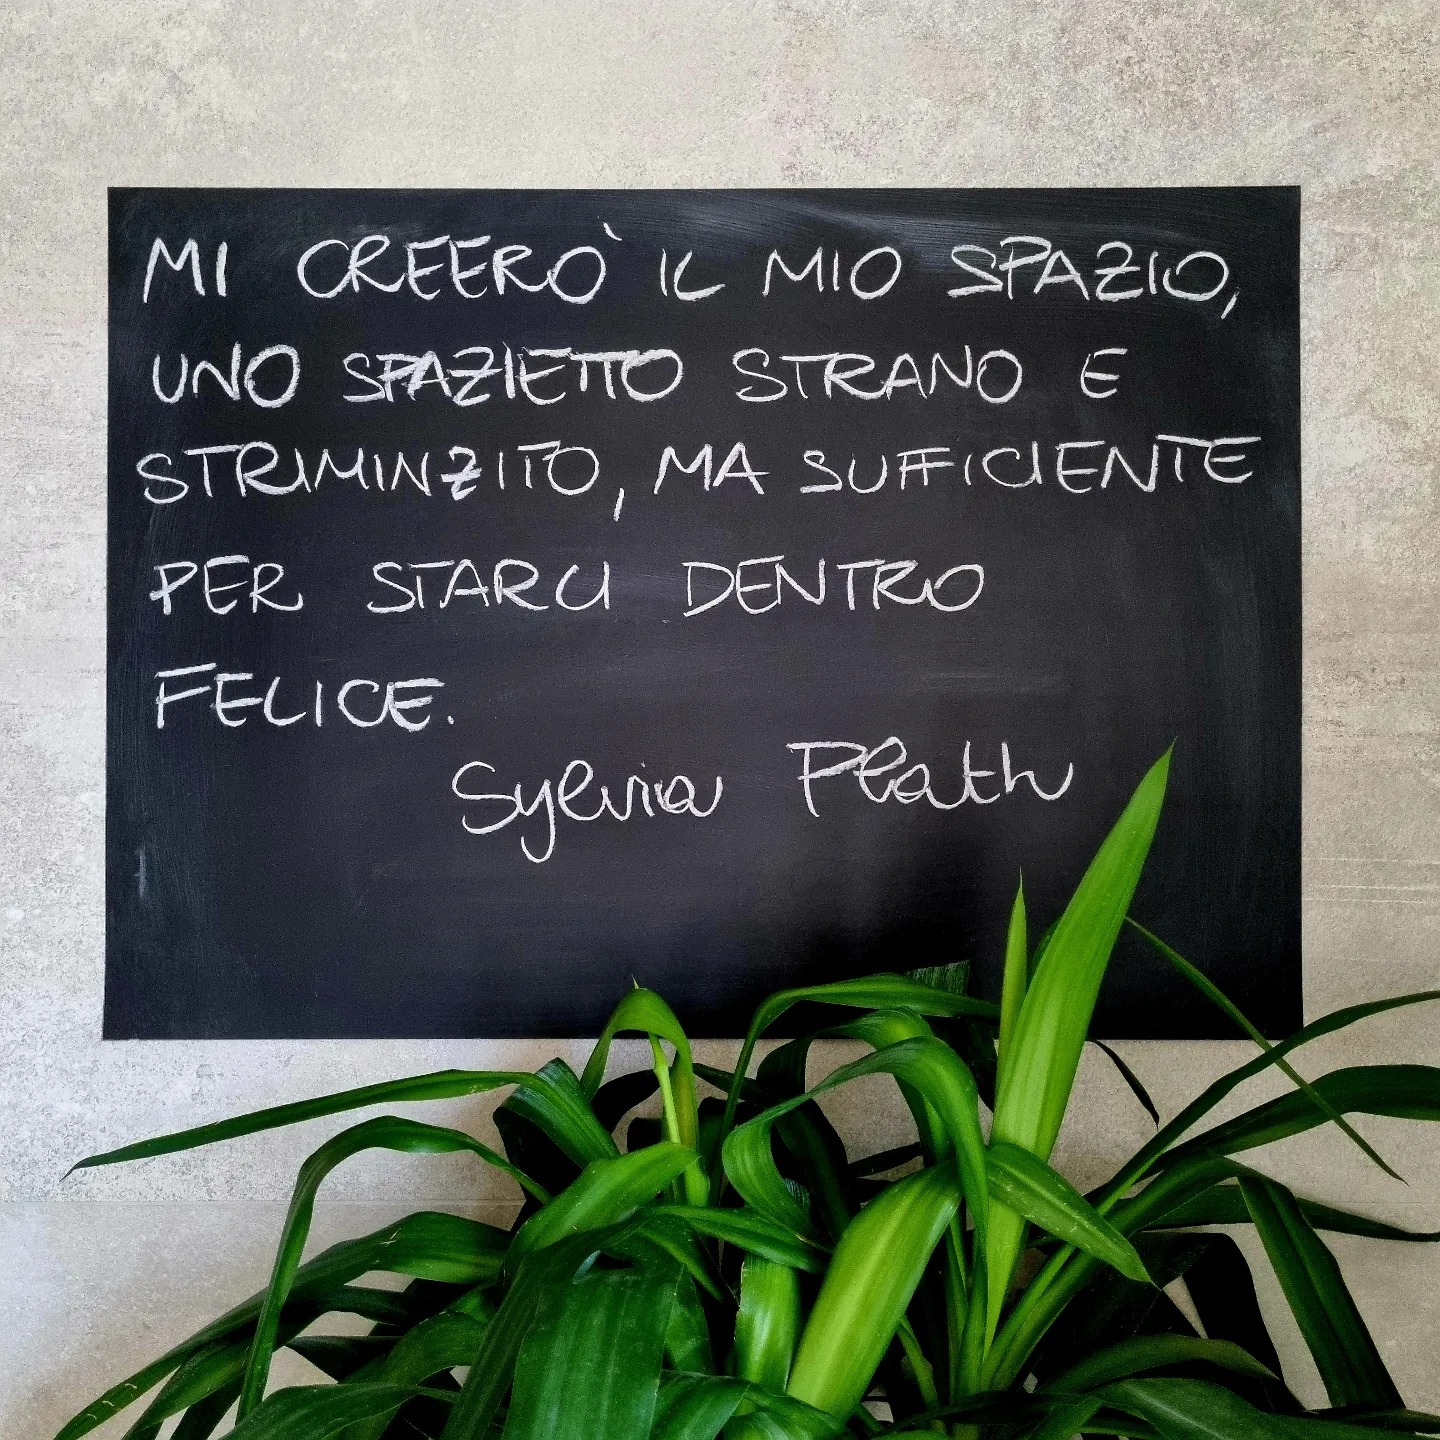 MI CREERÒ IL MIO SPAZIO,
UNO SPAZIETTO STRANO E
STRIMINZITO, MA SUFFICIENTE
PER STARCI DENTRO
FELICE.
Sylvia Plath